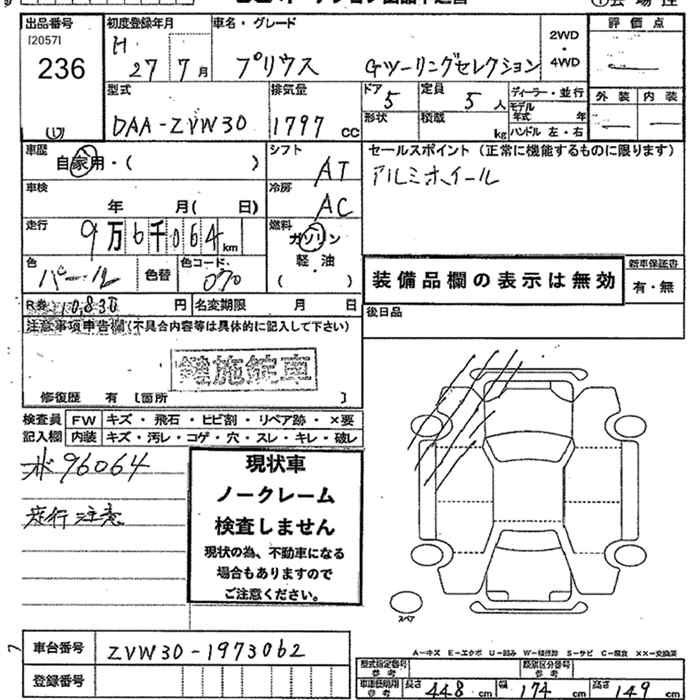 出品番号 初度登録年月 車名・グレード 評価点
[20571 H 27 7月 プリウス Gツーリングセレクション 2WD・4WD
236
型式 排気量 ドア 定員 ディーラー・並行 外装 内装
(1) DAA-ZVW30 1797 cc 5 5人 モデル年式 年
形状 積載 kg ハンドル 左・右
車歴 シフト セールスポイント（正常に機能するものに限ります）
自家用・( ) AT アルミホイール
車検 冷房
年 月( 日) AC
走行 燃料
9万6千064 km ガソリン
色 色コード 軽・油
パール 色替 070 ( ) 装備品欄の表示は無効 新車保証書
有・無
R券 10,830 円 名変期限 月 日 後日品
注意事項申告欄(不具合内容等は具体的に記入して下さい)
修復歴 有 [箇所 ]
検査員 FW キズ・飛石・ヒビ割・リペア跡・×要
記入欄 内装 キズ・汚レ・コゲ・穴・スレ・キレ・破レ
96064
走行注意
現状車
ノークレーム
検査しません
現状の為、不動車になる
場合もありますので
ご注意ください。
スペア
車台番号 ZVW30-1973062
A-キズ E-エクボ U-凹み W-補修跡 S-サビ C-腐食 ××-交換済
登録番号 型式指定番号 参考 類別区分番号 参考
長さ 448 cm 幅 174 cm 高さ 149 cm